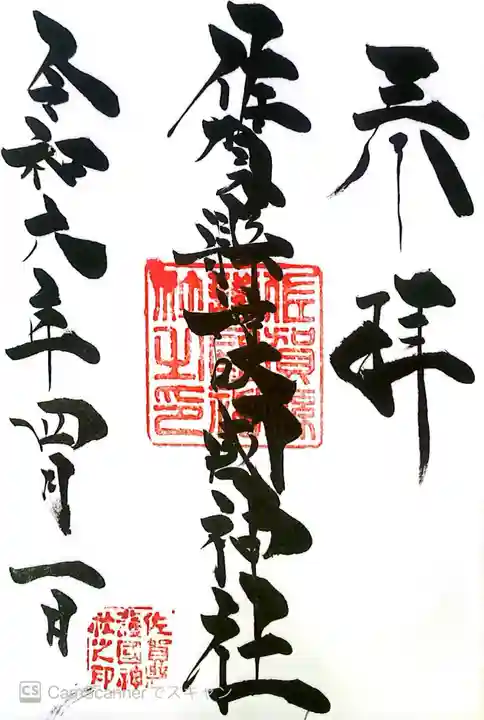 奉拝
佐賀縣護國神社
令和六年四月一日
佐賀縣
護國神
社之印
佐賀縣
護國神
社之印
CS CamScannerでスキャン